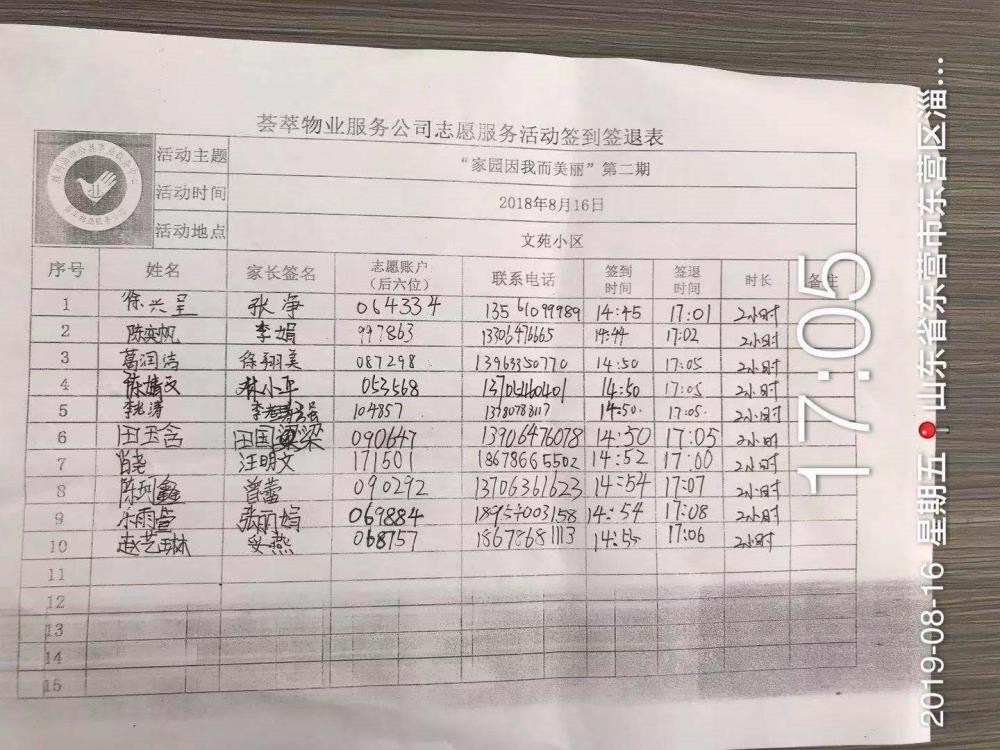 荟萃物业服务公司志愿服务活动签到签退表
活动主题 “家园因我而美丽”第二期
活动时间 2018年8月16日
活动地点 文苑小区
序号 姓名 家长签名 志愿账户（后六位） 联系电话 签到时间 签退时间 时长 备注
1 徐兴呈 张净 064334 13561099989 14:45 17:01 2小时
2 陈奕帆 李娟 997863 13306476665 14:44 17:02 2小时
3 葛润洁 徐翔美 087298 13963350770 14:50 17:05 2小时
4 陈婧文 林小平 053568 13704460401 14:50 17:05 2小时
5 李兆涛 104857 14:50. 17:05. 2小时
6 田玉含 田国梁 090647 13906476078 14:50 17:05 2小时
7 肖尧 汪明文 171501 18678665502 14:52 17:00 2小时
8 陈列鑫 曾蕾 090292 13706361623 14:54 17:07 2小时
9 乐雨萱 张丽娟 069884 18954003158 14:54 17:08 2小时
10 赵艺琳 燕 068757 18678681113 14:55 17:06 2小时
11
12
13
14
15
17:05
2019-08-16 星期五 山东省东营市东营区淄…